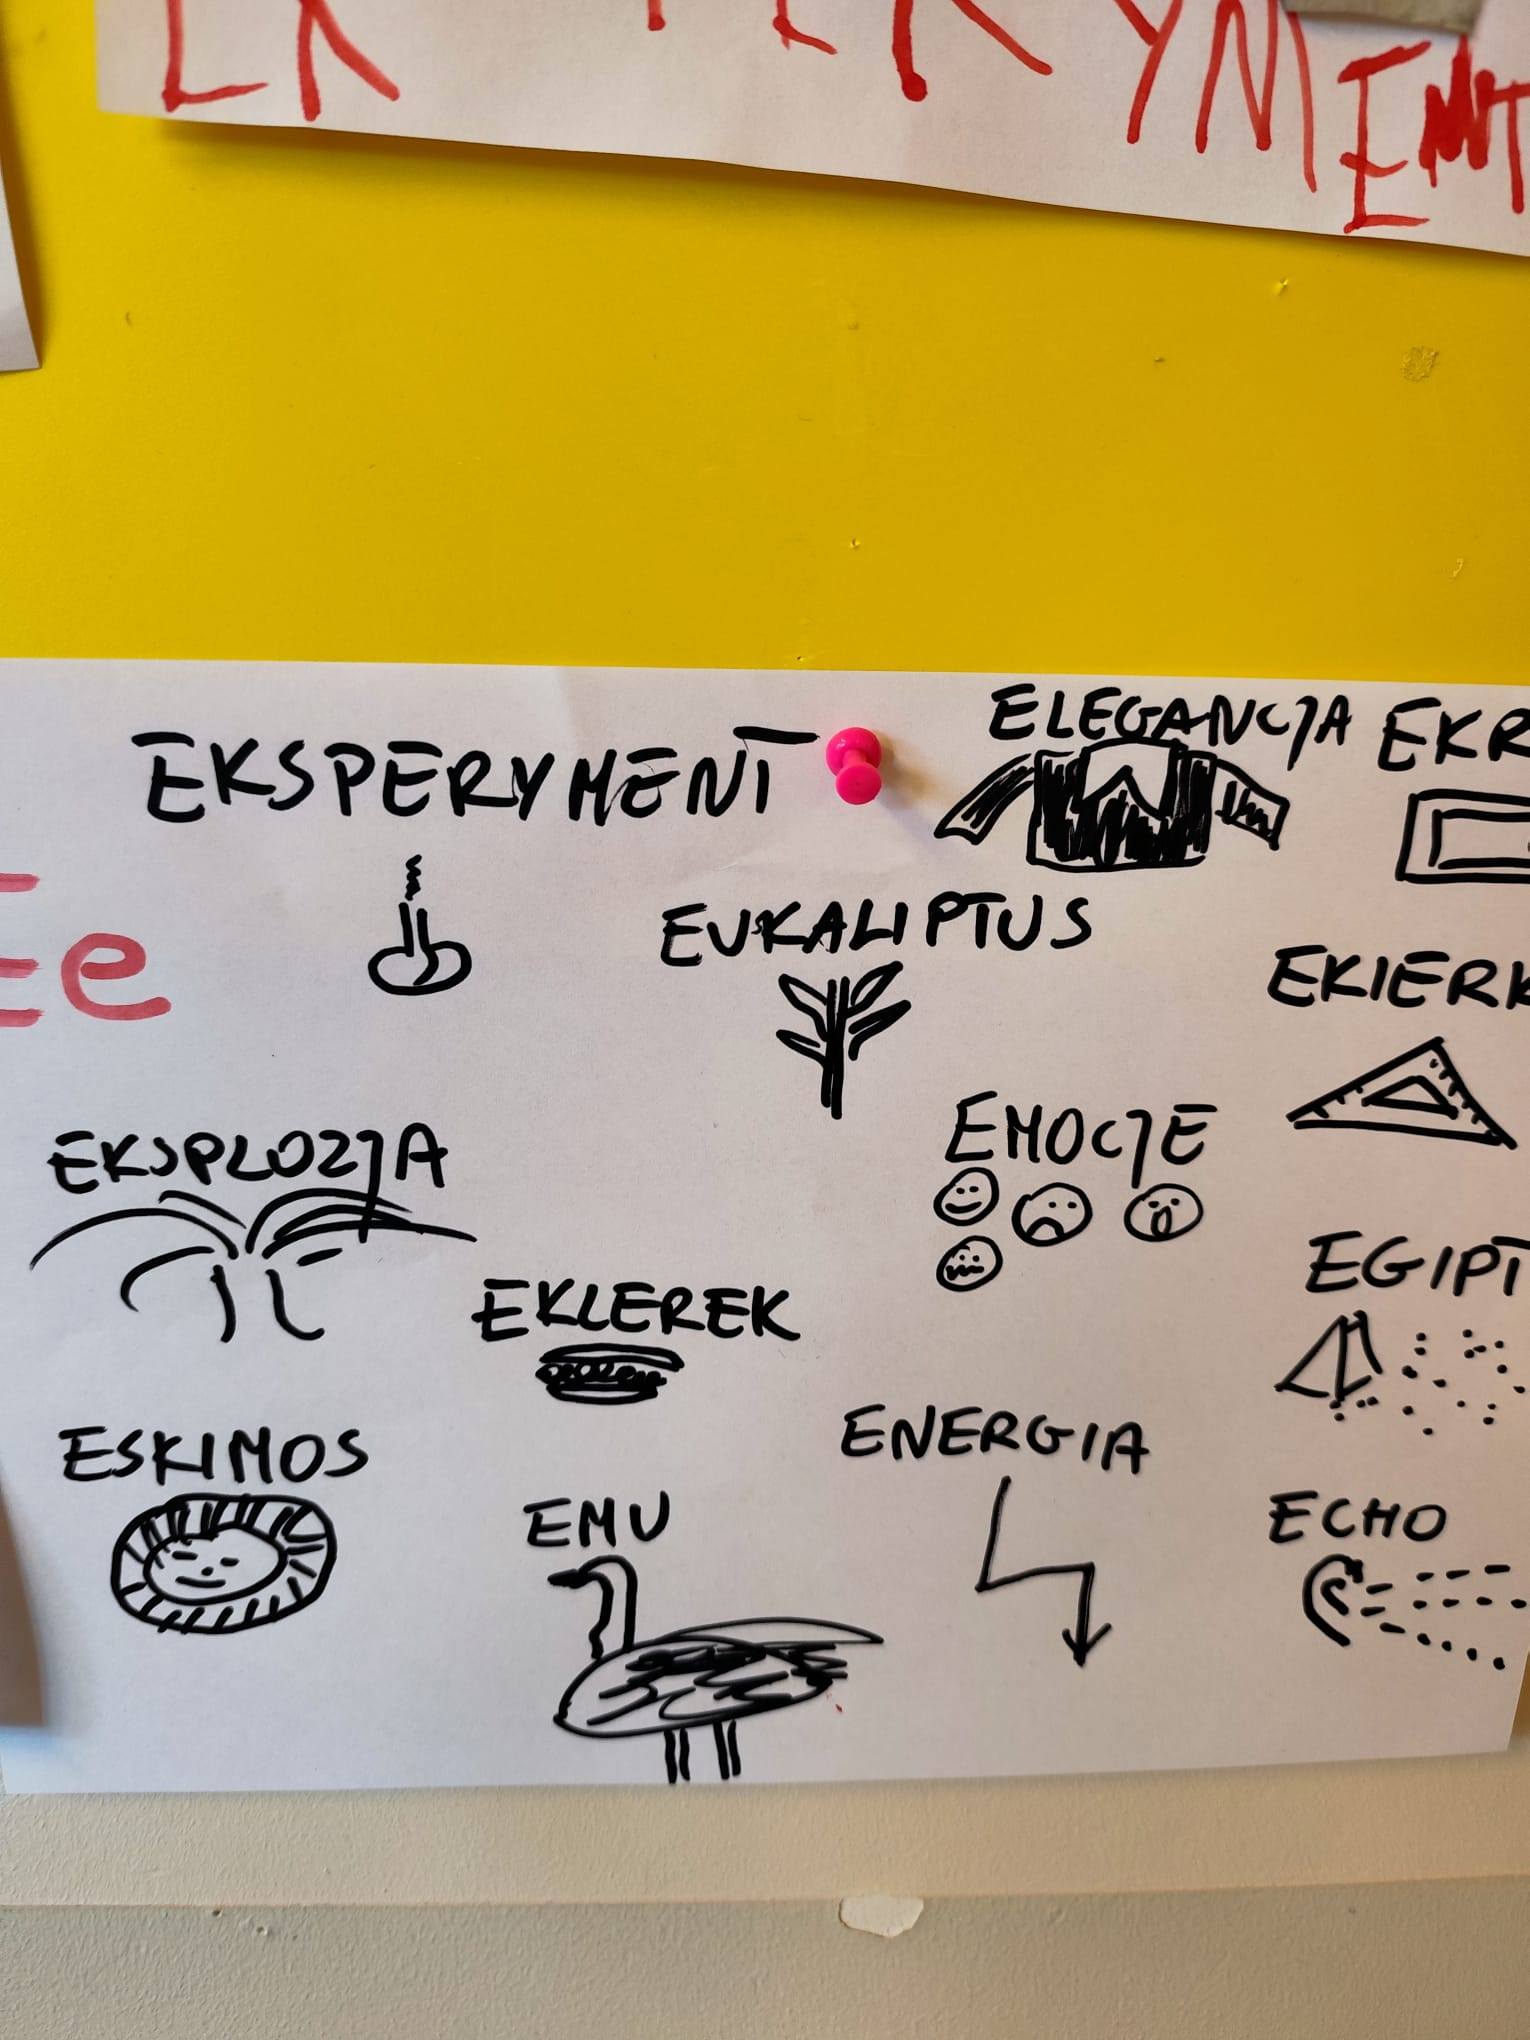 EKSPERYMENT
ELEGANCJA
EKR
EUKALIPTUS
Ee
EKIERK
EMOCJE
EKSPLOZJA
EGIPT
EKLEREK
ENERGIA
ESKIMOS
EMU
ECHO